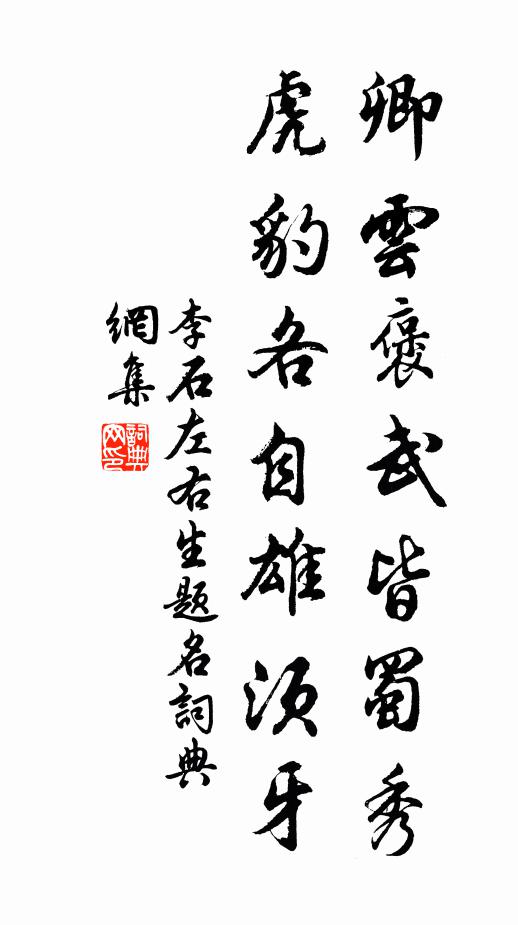 卿雲褒武皆蜀秀
虎豹各自雄須牙
李石左右生题名詞典
網集
詞典網印